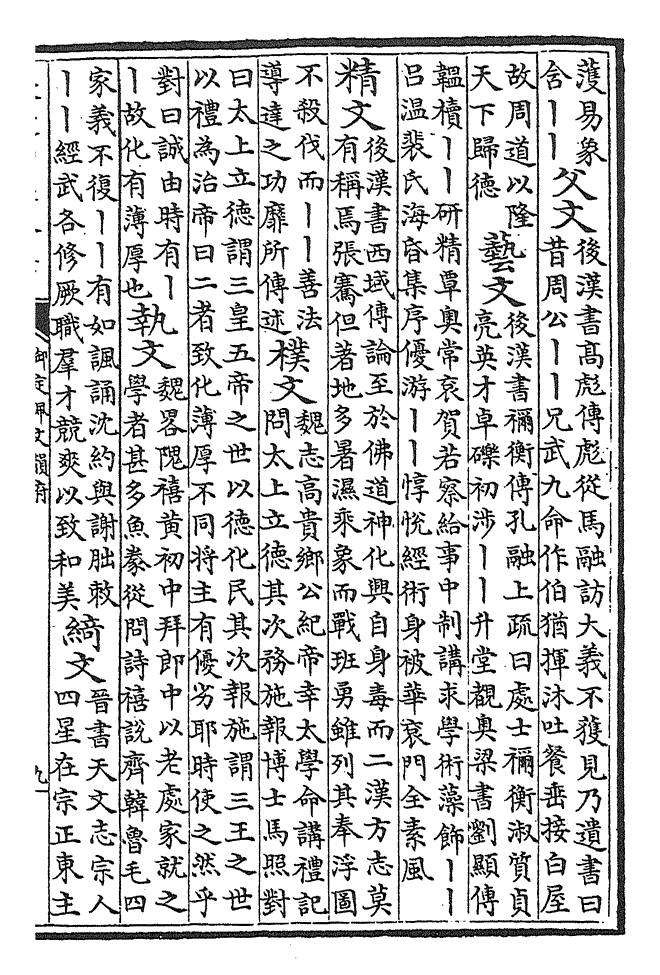 蒦易象
舍丨丨
父文
後漢書高彪傳彪從馬融訪大義不獲見乃遺書曰
昔周公丨丨兄武九命作伯猶揮沐吐餐垂接白屋
故周道以隆
天下歸德
藝文
後漢書禰衡傳孔融上疏曰處士禰衡淑質貞
亮英才卓礫初涉丨丨升堂覩奥梁書劉顯傳
韞櫝丨丨研精覃奥常衮賀若察給事中制講求學術藻飾丨丨
吕温裴氏海昏集序優游丨丨惇悦經術身被華衮門全素風
精文
後漢書西域傳論至於佛道神化興自身毒而二漢方志莫
有稱焉張騫但著地多暑濕乘象而戰班勇雖列其奉浮圖
不殺伐而丨丨善法
導達之功靡所傳述
樸文
魏志高貴鄉公紀帝幸太學命講禮記
問太上立德其次務施報博士馬照對
曰太上立德謂三皇五帝之世以德化民其次報施謂三王之世
以禮為治帝曰二者致化薄厚不同将主有優劣耶時使之然乎
對曰誠由時有丨
丨故化有薄厚也
執文
魏畧隗禧黄初中拜郎中以老處家就之
學者甚多魚豢從問詩禧說齊韓魯毛四
家義不復丨丨有如諷誦沈約與謝朏敕
丨丨經武各修厥職羣才競爽以致和美
綺文
晉書天文志宗人
四星在宗正東主
御定佩文韻府
九